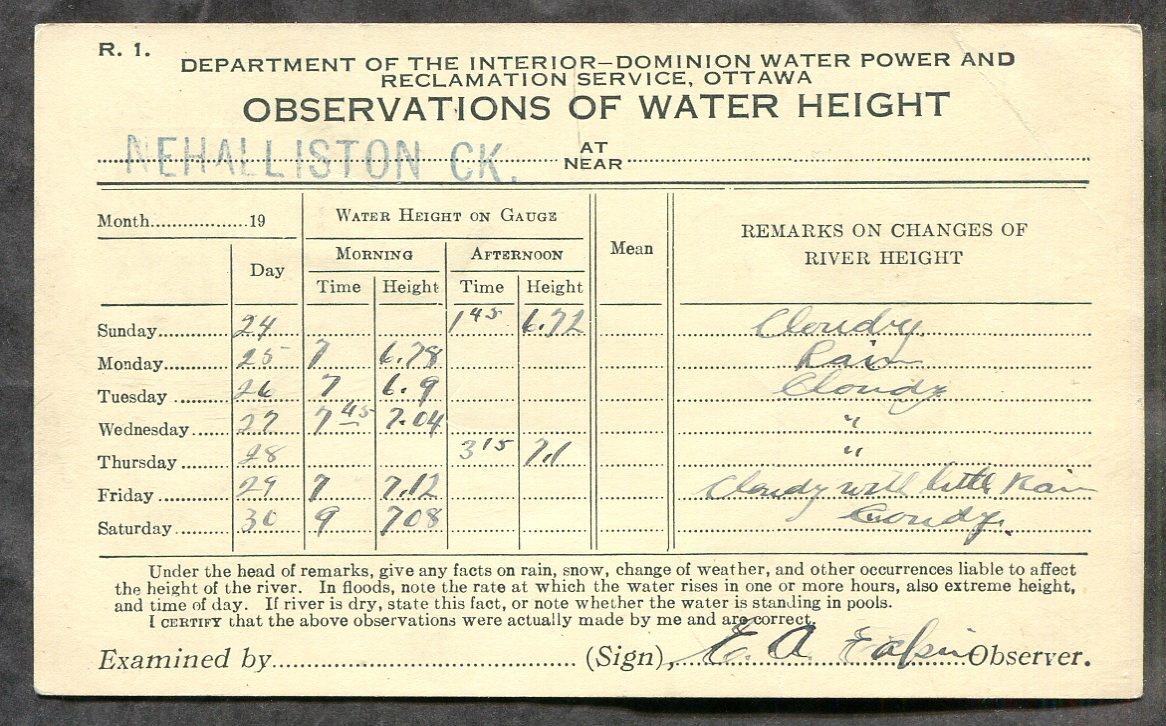 R. 1.
DEPARTMENT OF THE INTERIOR—DOMINION WATER POWER AND
RECLAMATION SERVICE, OTTAWA
OBSERVATIONS OF WATER HEIGHT
NEHALLISTON CK. AT
NEAR
Month..................19 WATER HEIGHT ON GAUGE Mean REMARKS ON CHANGES OF
RIVER HEIGHT
Day MORNING AFTERNOON
Time Height Time Height
Sunday 24 1 45 6.72 Cloudy
Monday 25 7 6.78 Rain
Tuesday 26 7 6.9 Cloudy
Wednesday 27 7 45 7.04 "
Thursday 28 3 15 7.1 "
Friday 29 7 7.12 Cloudy with little Rain
Saturday 30 9 708 Cloudy.
Under the head of remarks, give any facts on rain, snow, change of weather, and other occurrences liable to affect
the height of the river. In floods, note the rate at which the water rises in one or more hours, also extreme height,
and time of day. If river is dry, state this fact, or note whether the water is standing in pools.
I CERTIFY that the above observations were actually made by me and are correct.
Examined by (Sign), E. A. Observer.